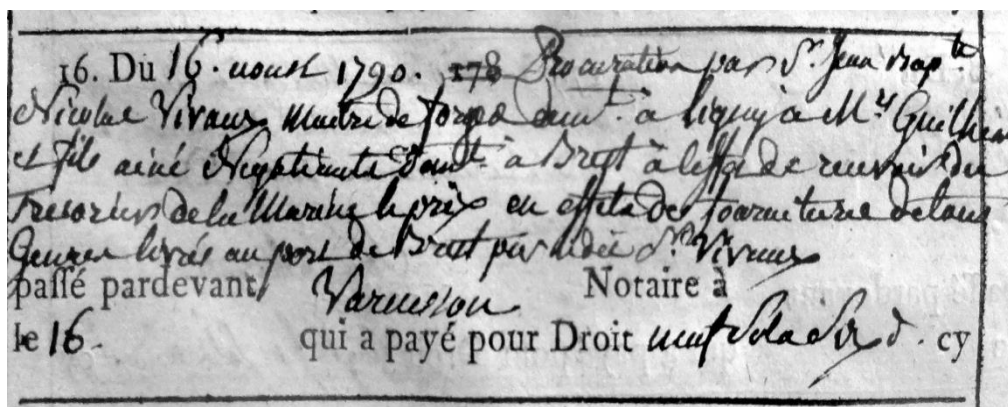 16. Du 16. aoust 1790. 178 Procuration par Sr. Jean Bapte
Nicolas Vivaux Maitre de forges demt. à ligny à Mrs Guilhem
et fils ainé Negotiants demt. à Brest à leffet de recevoir du
Tresorier de la Marine le prix en effets de fourniture de tous
Genres livrés au port de Brest par ledit Sr. Vivaux
passé pardevant Varnesson Notaire à
le 16. qui a payé pour Droit neuf Sols Six d. cy